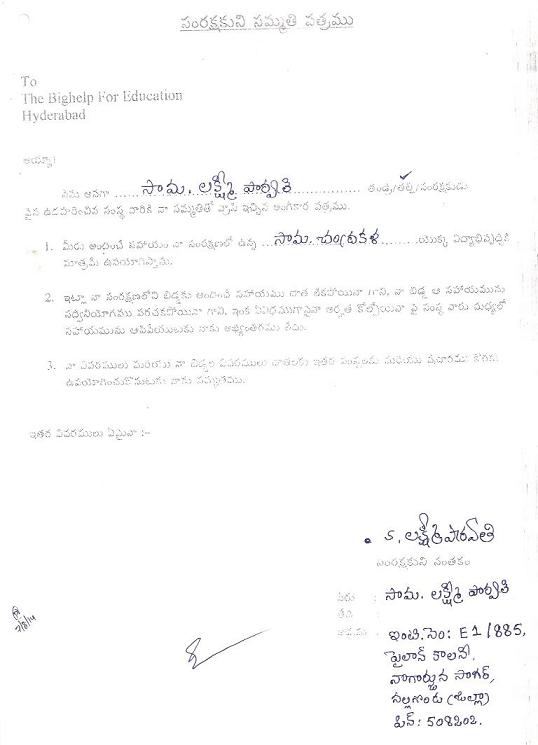 సంరక్షకుని సమ్మతి పత్రము
To
The Bighelp For Education
Hyderabad
అయ్యా!
నేను అనగా ...... సామ. లక్ష్మీ పార్వతి ................ తండ్రి/తల్లి/సంరక్షకుడు
పైన ఉదహరించిన సంస్థ వారికి నా సమ్మతితో వ్రాసి ఇచ్చిన అంగీకార పత్రము.
1. మీరు అందించే సహాయం నా సంరక్షణలో ఉన్న ...సామ.చంద్రకళ........యొక్క విద్యాభివృద్ధికి
మాత్రమే ఉపయోగిస్తాను.
2. ఇట్లా నా సంరక్షణలోని బిడ్డకు అందించే సహాయము దాత లేకపోయినా గాని, నా బిడ్డ ఆ సహాయమును
సద్వినియోగము పరచకపోయినా గాని, ఇంక ఏవిధముగానైనా అర్హత కోల్పోయినా పై సంస్థ వారు మధ్యలో
సహాయమును ఆపివేయుటకు నాకు అభ్యంతరము లేదు.
3. నా వివరములు మరియు నా బిడ్డల వివరములు దాతలకు ఇతర సంస్థలకు మరియు ప్రచారము కొరకు
ఉపయోగించుకొనుటకు నాకు సమ్మతము.
ఇతర వివరములు ఏమైనా :-
S. లక్ష్మీపారవతి
సంరక్షకుని సంతకం
పేరు : సామ. లక్ష్మీ పార్వతి
తేది :
ఇంటి.నెం: E1/885,
పైలాన్ కాలనీ,
నాగార్జున సాగర్,
నల్లగొండ (జిల్లా)
పిన్: 508202.